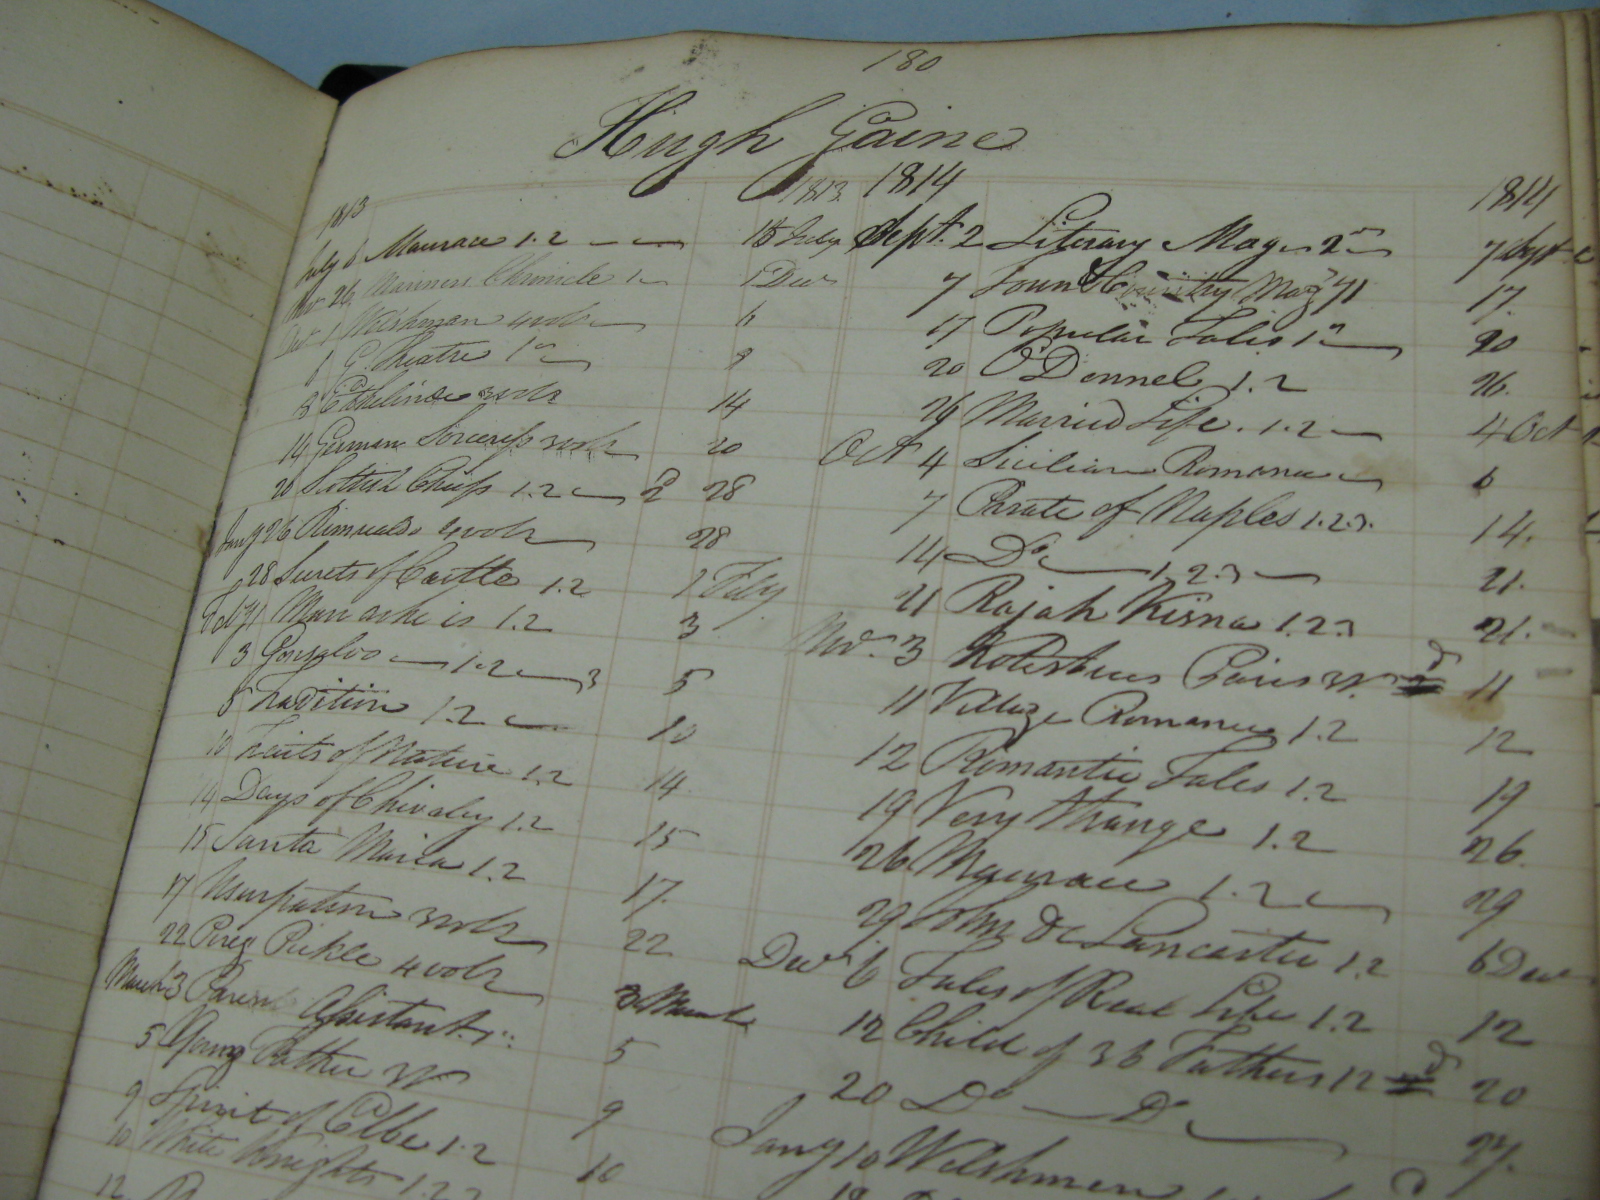 180
Hugh Gaine
1813 1813 1814 1814
July 6 Manrace 1.2 15 July
Nov 26 Mariners Chronicle 1 1 Decr
Dec 1 Welshman 4 vols 6
6 G. Theatre 1 8
8 Ethelinde 3 vols 14
14 German Sorceress 3 vols 20
20 Scottish Chiefs 1.2 2 28
Jany 26 Rimualdo 4 vols 28
28 Secrets of Castle 1.2 1 Feby
Feby 1 Man as he is 1.2 3
3 Gonzalvo 1.2 3 5
5 Tradition 1.2 10
10 Traits of Nature 1.2 14
14 Days of Chivalry 1.2 15
15 Santa Maria 1.2 17
17 Usurpation 3 vols 22
22 Pereg Pickle 4 vols
March 3 Parents Assistant 3 March
5 Young Father 3 v 5
9 Spirit of Elbe 1.2 9
10 White Knights 1.2.3 10
12
Sept. 2 Literary Mag. 2 7 Sept
7 Town & Country Mag 71 17
17 Popular Tales 1 20
20 O'Donnel 1.2 26.
26 Married Life. 1.2 4 Oct
Oct 4 Sicilian Romance 6
7 Pirate of Naples 1.2.3. 14.
14 Do 1.2.3 21.
21 Rajah Kisna 1.2.3 21.
Nov. 3 Rotzebues Paris 3 v. 11
11 Village Romance 1.2 12
12 Romantic Tales 1.2 19
19 Very Strange 1.2 26.
26 Manrace 1.2 29
29 John de Lancaster 1.2 6 Decr
Decr 6 Tales of Real Life 1.2 12
12 Child of 36 Fathers 1 2 20
20 Do Do 27.
Jany 10 Welshman